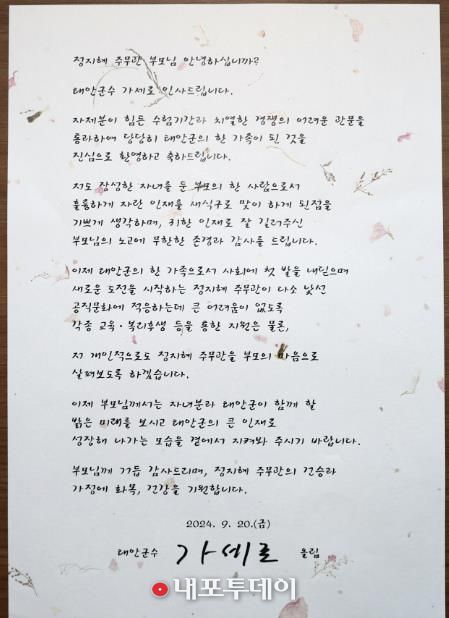 정지혜 주무관 부모님 안녕하십니까?
태안군수 가세로 인사드립니다.
자제분이 힘든 수험기간과 치열한 경쟁의 어려운 관문을
통과하여 당당히 태안군의 한 가족이 된 것을
진심으로 환영하고 축하드립니다.
저도 장성한 자녀를 둔 부모의 한 사람으로서
훌륭하게 자란 인재를 새식구로 맞이 하게 된점을
기쁘게 생각하며, 귀한 인재로 잘 길러주신
부모님의 노고에 무한한 존경과 감사를 드립니다.
이제 태안군의 한 가족으로서 사회에 첫 발을 내딛으며
새로운 도전을 시작하는 정지혜 주무관이 다소 낯선
공직문화에 적응하는데 큰 어려움이 없도록
각종 교육·복리후생 등을 통한 지원은 물론,
저 개인적으로도 정지혜 주무관을 부모의 마음으로
살펴보도록 하겠습니다.
이제 부모님께서는 자녀분과 태안군이 함께 할
밝은 미래를 보시고 태안군의 큰 인재로
성장해 나가는 모습을 곁에서 지켜봐 주시기 바랍니다.
부모님께 거듭 감사드리며, 정지혜 주무관의 건승과
가정에 화목, 건강을 기원합니다.
2024. 9. 20.(금)
태안군수 가세로 올림
내포투데이